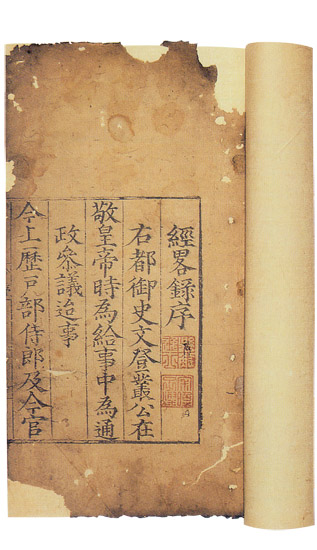 經畧錄序
右都御史文登叢公在
敬皇帝時為給事中為通
政參議迨事
今上歷戶部侍郎及今官